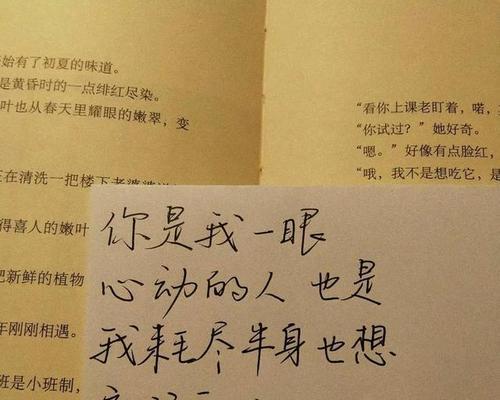 始有了初夏的味道。
是黄昏时的一点绯红尽染。
叶也从春天里耀眼的嫩翠，变
在清洗一把楼下老婆婆
得喜人的嫩叶
把新鲜的植物
年刚刚相遇。
班是小班制，
“看你上课老盯着，喏，
“你试过？”她好奇。
“嗯。”好像有点脸红，
“哦，我不是想吃它，是
你是我一眼
心动的人 也是
我耗尽半身也想